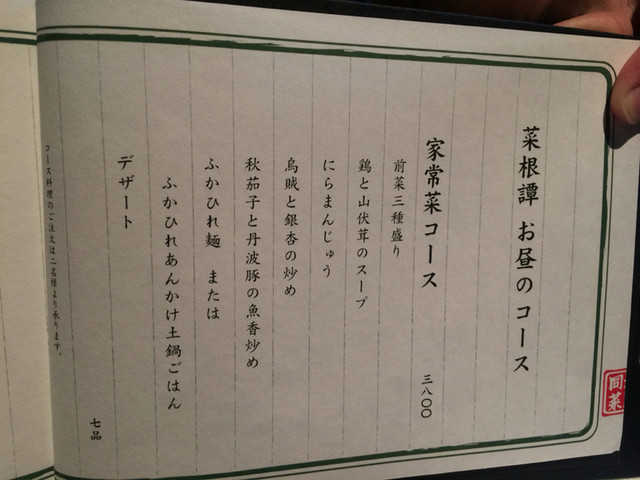 菜根譚 お昼のコース
家常菜コース 三八〇〇
前菜三種盛り
鶏と山伏茸のスープ
にらまんじゅう
烏賊と銀杏の炒め
秋茄子と丹波豚の魚香炒め
ふかひれ麺 または
ふかひれあんかけ土鍋ごはん
デザート
七品
コース料理のご注文は二名様より承ります。
同菜